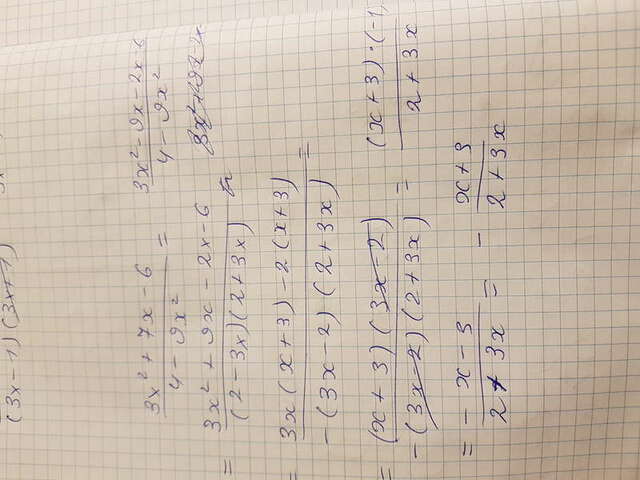 (3x-1)(3x+1)
(3x² + 7x - 6)/(4 - 9x²) = (3x² - 9x - 2x - 6)/(4 - 9x²)
= (3x² + 9x - 2x - 6)/((2 - 3x)(2 + 3x)) =
= (3x(x+3) - 2(x+3))/(-(3x-2)(2+3x)) =
= ((x+3)(3x-2))/(-(3x-2)(2+3x)) = ((x+3)·(-1))/(2+3x)
= (-x-3)/(2+3x) = -(x+3)/(2+3x)